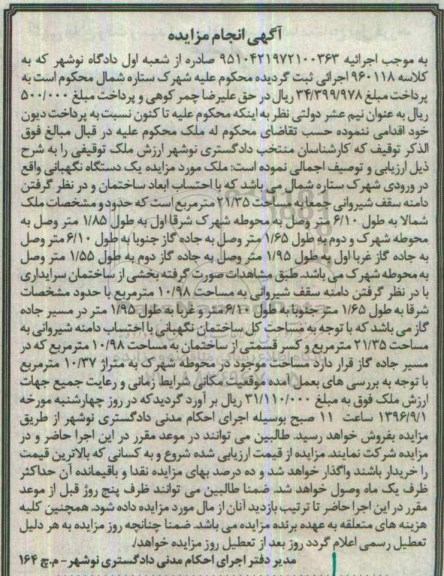 آگهی انجام مزایده
به موجب اجرائیه ۹۵۱۰۴۲۱۹۷۲۱۰۰۳۶۳ صادره از شعبه اول دادگاه نوشهر که به
کلاسه ۹۶۰۱۱۸ اجرائی ثبت گردیده محکوم علیه شهرک ستاره شمال محکوم است به
پرداخت مبلغ ۳۴/۳۹۹/۹۷۸ ریال در حق علیرضا چمر کوهی و پرداخت مبلغ ۵۰۰/۰۰۰
ریال به عنوان نیم عشر دولتی نظر به اینکه محکوم علیه تا کنون نسبت به پرداخت دیون
خود اقدامی ننموده حسب تقاضای محکوم له ملک محکوم علیه در قبال مبالغ فوق
الذکر توقیف که کارشناسان منتخب دادگستری نوشهر ارزش ملک توقیفی را به شرح
ذیل ارزیابی و توصیف اجمالی نموده است: ملک مورد مزایده یک دستگاه نگهبانی واقع
در ورودی شهرک ستاره شمال می باشد که با احتساب ابعاد ساختمان و در نظر گرفتن
دامنه سقف شیروانی جمعا به مساحت ۲۱/۳۵ مترمربع است که حدود و مشخصات ملک
شمالا به طول ۶/۱۰ متر وصل به محوطه شهرک شرقا اول به طول ۱/۸۵ متر وصل به
محوطه شهرک و دوم به طول ۱/۶۵ متر وصل به جاده گاز جنوبا به طول ۶/۱۰ متر وصل
به جاده گاز غربا اول به طول ۱/۹۵ متر وصل به جاده گاز دوم به طول ۱/۵۵ متر وصل
به محوطه شهرک می باشد. طبق مشاهدات صورت گرفته بخشی از ساختمان سرایداری
با در نظر گرفتن دامنه سقف شیروانی به مساحت ۱۰/۹۸ مترمربع با حدود مشخصات
شرقا به طول ۱/۶۵ متر جنوبا به طول ۶/۱۰ متر و غربا به طول ۱/۹۵ متر در مسیر جاده
گاز می باشد که با توجه به مساحت کل ساختمان نگهبانی با احتساب دامنه شیروانی به
مساحت ۲۱/۳۵ مترمربع و کسر قسمتی از ساختمان به مساحت ۱۰/۹۸ مترمربع که در
مسیر جاده گاز قرار دارد مساحت موجود در محوطه شهرک به متراژ ۱۰/۳۷ مترمربع
با توجه به بررسی های بعمل آمده موقعیت مکانی شرایط زمانی و رعایت جمیع جهات
ارزش ملک فوق به مبلغ ۳۱/۱۱۰/۰۰۰ ریال بر آورد گردید که در روز چهارشنبه مورخه
۱۳۹۶/۹/۱ ساعت ۱۱ صبح بوسیله اجرای احکام مدنی دادگستری نوشهر از طریق
مزایده بفروش خواهد رسید. طالبین می توانند در موعد مقرر در این اجرا حاضر و در
مزایده شرکت نمایند. مزایده از قیمت ارزیابی شده شروع و به کسانی که بالاترین قیمت
را خریدار باشند واگذار خواهد شد و ده درصد بهای مزایده نقدا و باقیمانده آن حداکثر
ظرف یک ماه وصول خواهد شد. ضمنا طالبین می توانند ظرف پنج روز قبل از موعد
مقرر در این اجرا حاضر تا ترتیب بازدید آنان از مال مورد مزایده داده شود. همچنین کلیه
هزینه های متعلقه به عهده برنده مزایده می باشد. ضمنا چنانچه روز مزایده به هر دلیل
تعطیل رسمی اعلام گردد روز بعد از تعطیل روز مزایده خواهد/.
مدیر دفتر اجرای احکام مدنی دادگستری نوشهر - م.چ ۱۶۴